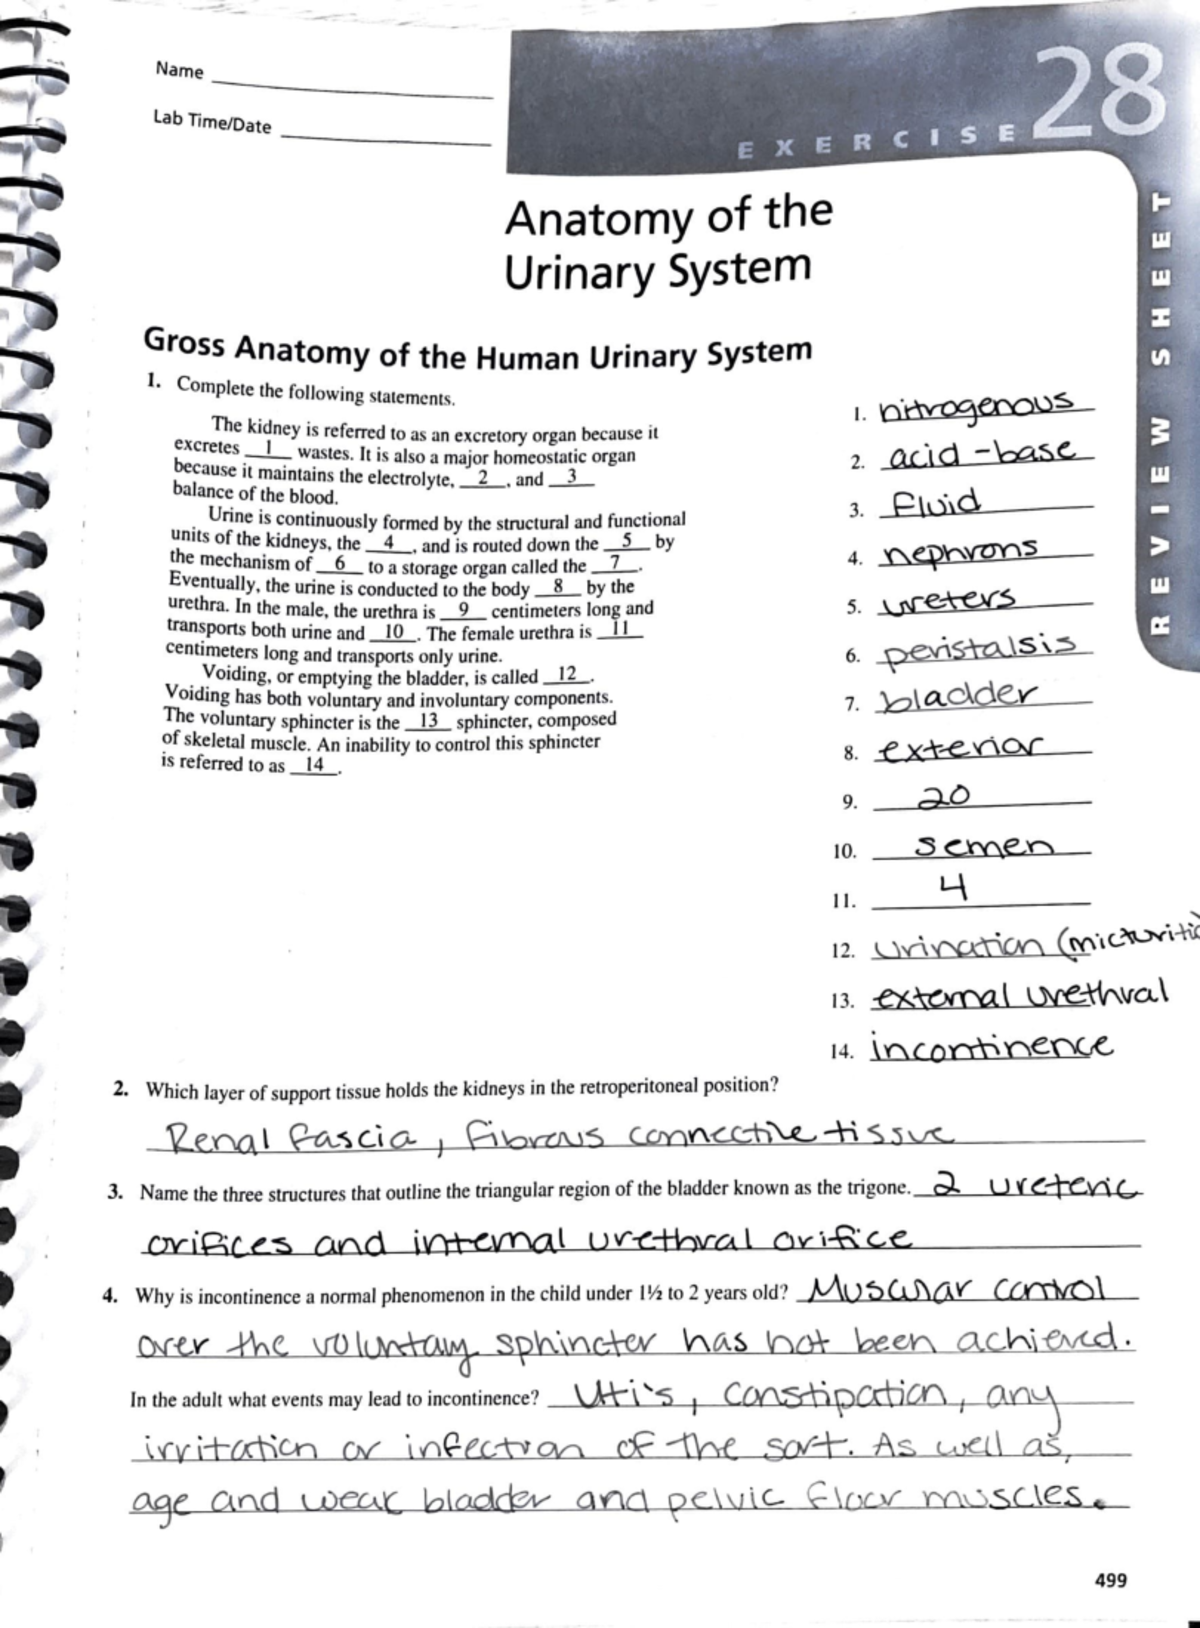 Name
Lab Time/Date
EXERCISE 28
REVIEW SHEET
Anatomy of the
Urinary System
Gross Anatomy of the Human Urinary System
1. Complete the following statements.
The kidney is referred to as an excretory organ because it
excretes 1 wastes. It is also a major homeostatic organ
because it maintains the electrolyte, 2, and 3
balance of the blood.
Urine is continuously formed by the structural and functional
units of the kidneys, the 4, and is routed down the 5 by
the mechanism of 6 to a storage organ called the 7.
Eventually, the urine is conducted to the body 8 by the
urethra. In the male, the urethra is 9 centimeters long and
transports both urine and 10. The female urethra is 11
centimeters long and transports only urine.
Voiding, or emptying the bladder, is called 12.
Voiding has both voluntary and involuntary components.
The voluntary sphincter is the 13 sphincter, composed
of skeletal muscle. An inability to control this sphincter
is referred to as 14.
1. nitrogenous
2. acid-base
3. Fluid
4. nephrons
5. ureters
6. peristalsis
7. bladder
8. exterior
9. 20
10. semen
11. 4
12. urination (micturitio
13. external urethral
14. incontinence
2. Which layer of support tissue holds the kidneys in the retroperitoneal position?
Renal fascia, fibrous connective tissue
3. Name the three structures that outline the triangular region of the bladder known as the trigone. 2 ureteric
orifices and internal urethral orifice
4. Why is incontinence a normal phenomenon in the child under 1½ to 2 years old? Muscular control
over the voluntary sphincter has not been achieved.
In the adult what events may lead to incontinence? Uti's, constipation, any
irritation or infection of the sort. As well as,
age and weak bladder and pelvic floor muscles.
499